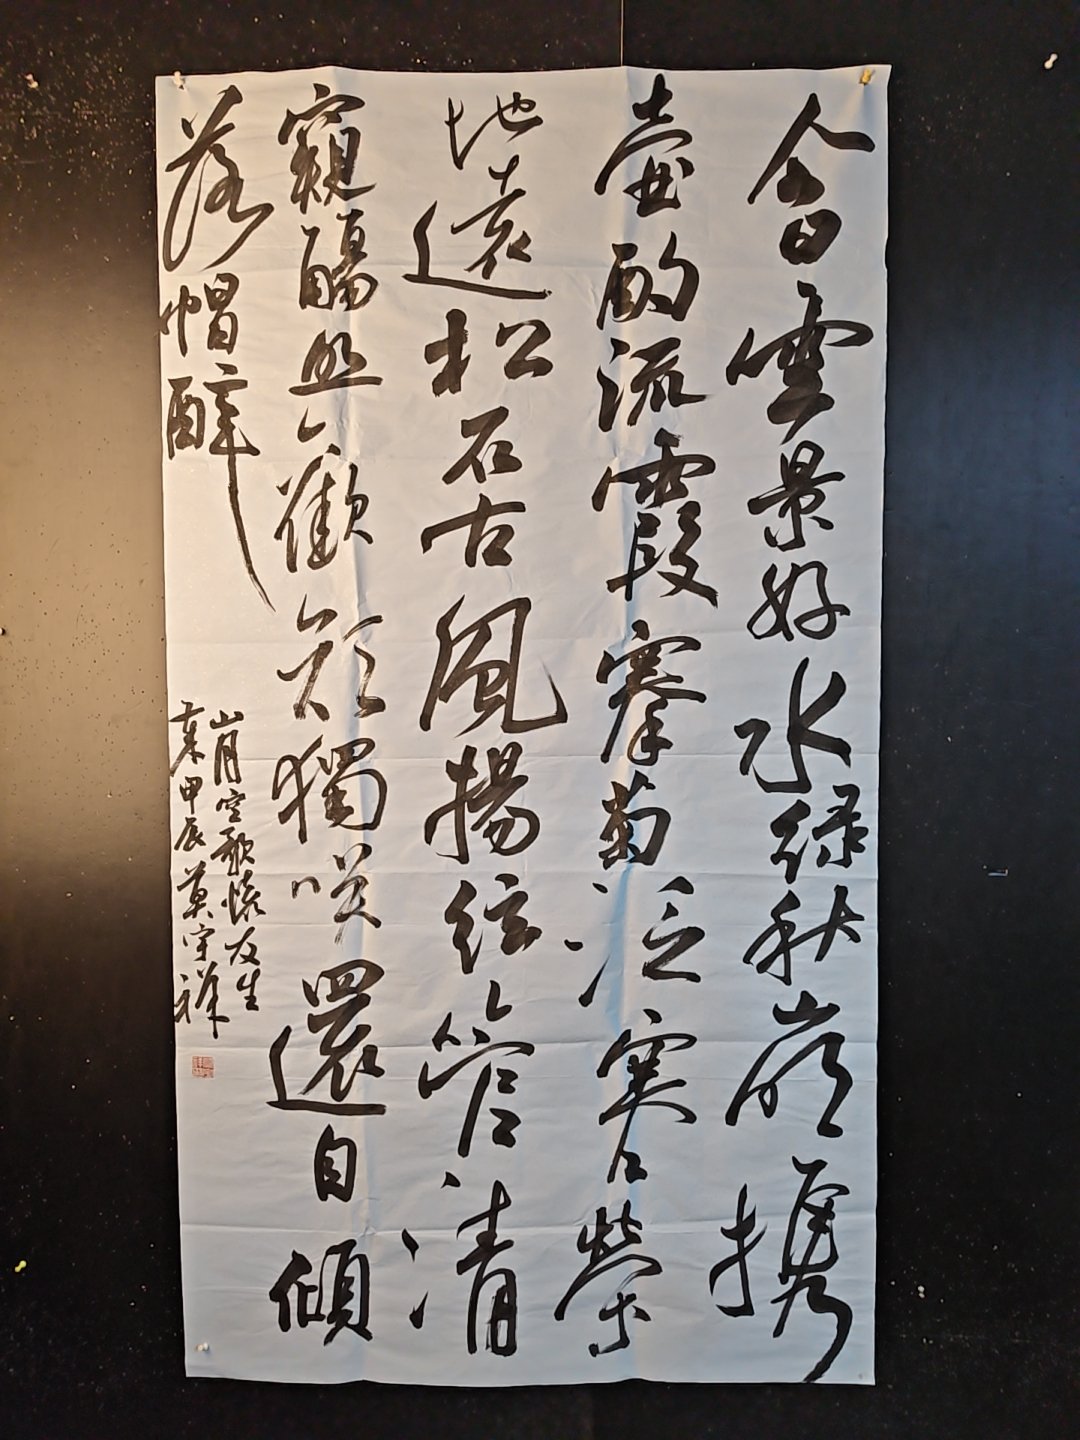 今日雲景好水緑秋山明携
壺酌流霞搴菊泛寒榮
地遠松石古風揚絃管清
窺觴照歡顔獨咲還自傾
落帽醉
山月空歌懷友生
甲辰莫宇祥